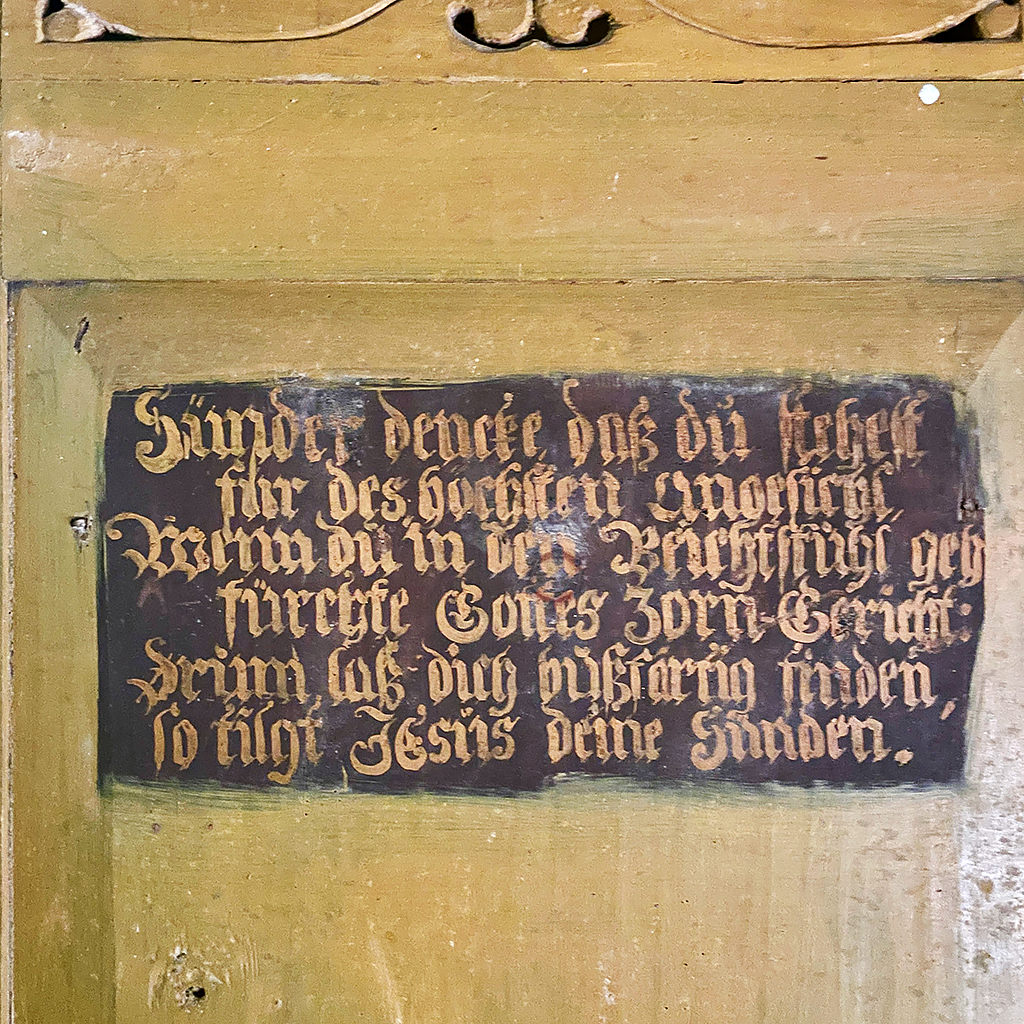 Sünder dencke, daß du stehest
für des höchsten Angesicht,
Wenn du in den Beichtstuhl geh
fürchte Gottes Zorn-Gericht:
Drum laß dich bußfärtig finden,
so tilgt JEsus deine Sünden.